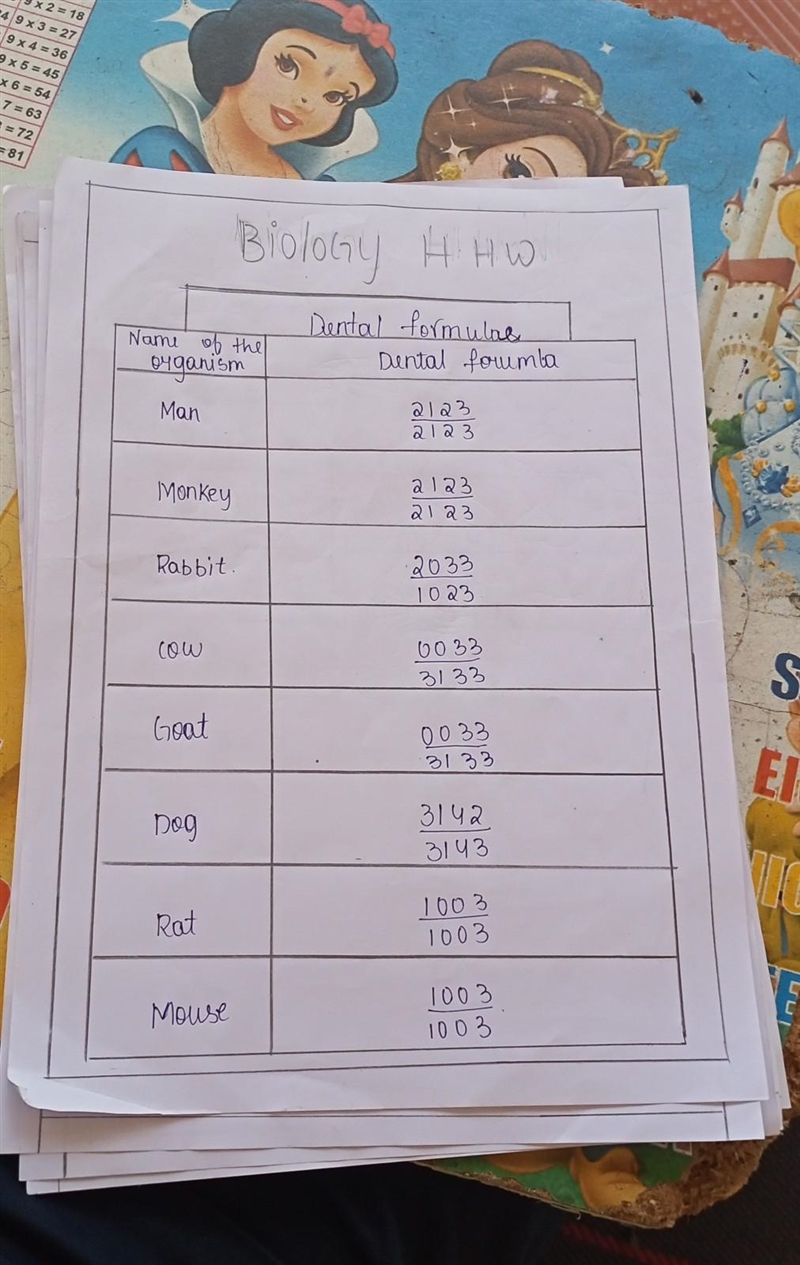 9 x 2 = 18
9 x 3 = 27
9 x 4 = 36
9 x 5 = 45
x 6 = 54
7 = 63
= 72
= 81
Biology H HW
Dental formulae
Name of the organism Dental forumla
Man 2123
2123
Monkey 2123
2123
Rabbit. 2033
1023
Cow 0033
3133
Goat 0033
3133
Dog 3142
3143
Rat 1003
1003
Mouse 1003
1003
S
EI